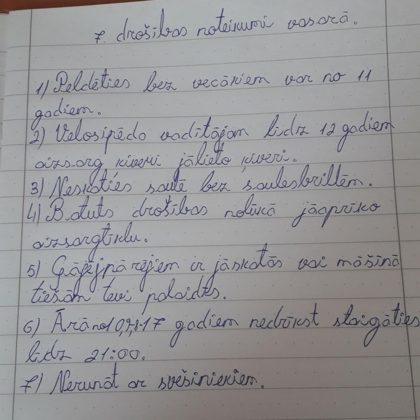 7. drošības noteikumi vasarā.
1) Peldēties bez vecākiem var no 11
gadiem.
2) Velosipēda vadītājam līdz 12 gadiem
aizsarg ķiveri jālieto ķiveri.
3) Neskaties saulē bez saulesbrillēm.
4) Batuts drošības nolūkā jāaprīko
aizsargtīklu.
5) Gājējpārējiem ir jāskatās vai māšīnā
tiešām tevi palaidīs.
6) Ārā no 17 gadiem nedrīkst staigāties
līdz 21:00.
7) Nerunāt ar svešiniekiem.